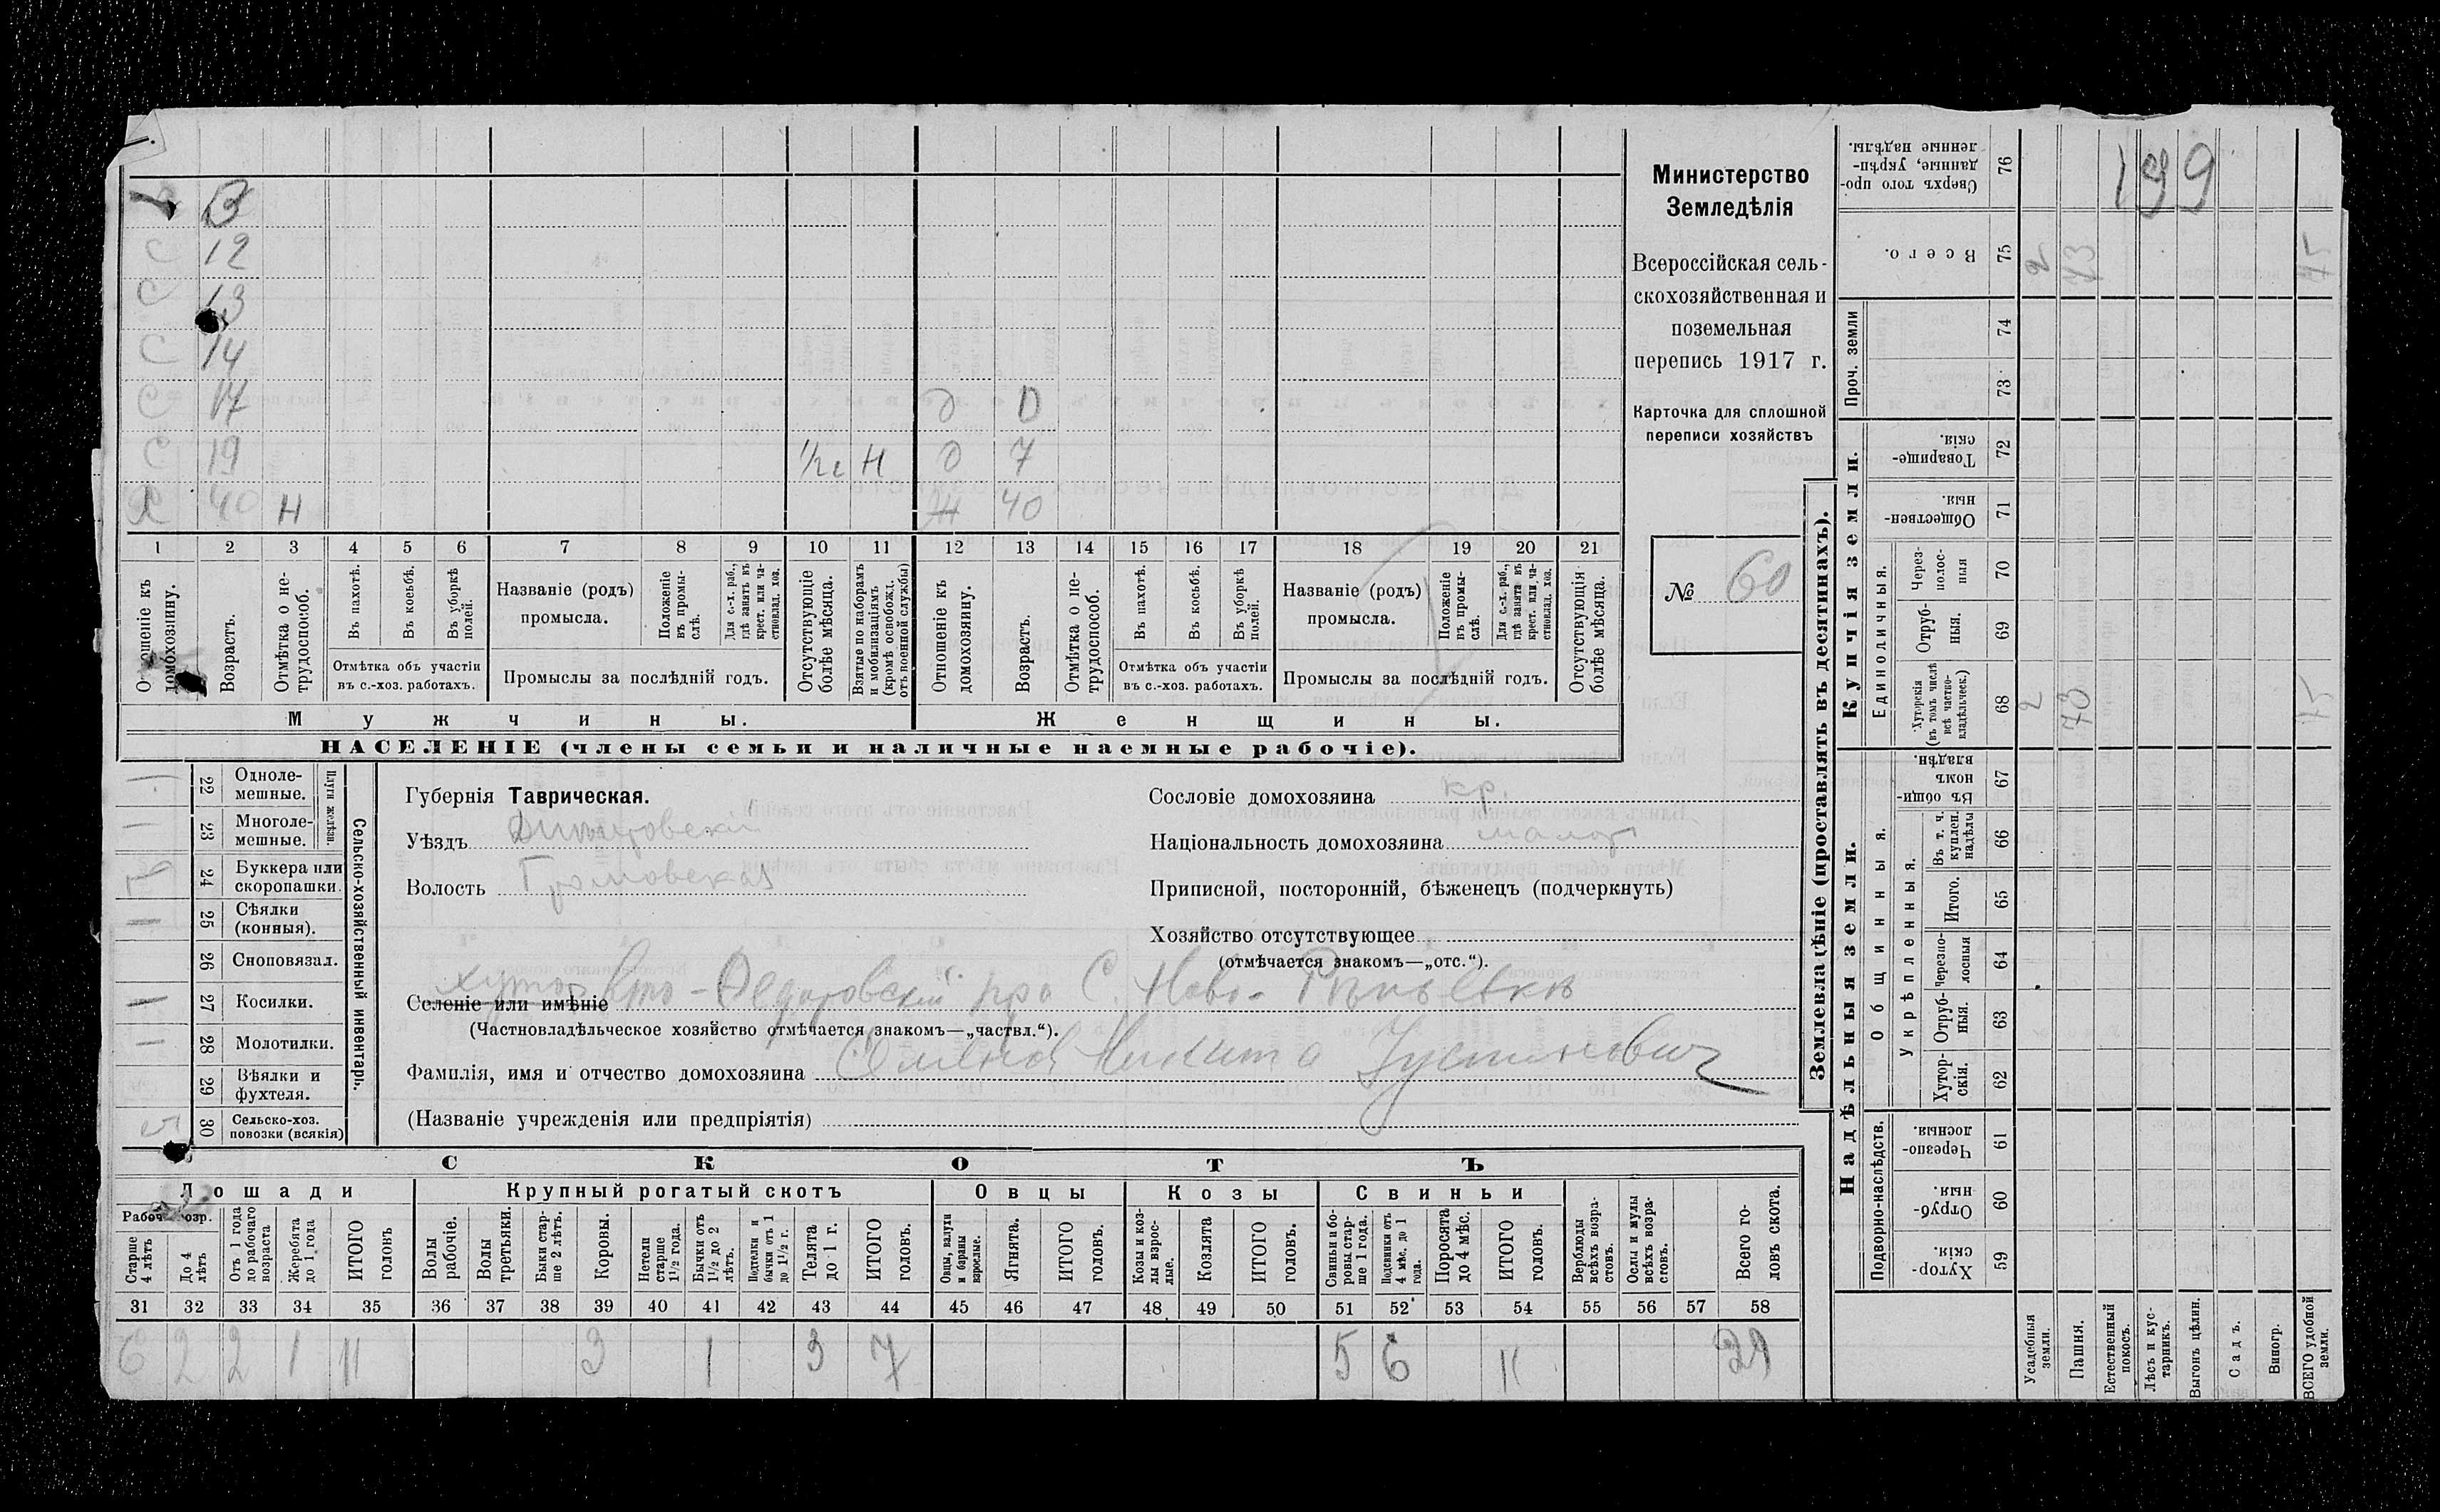 В
С 12
С 13
С 14
С 17 О
С 19 1/2 Н О 7
Х 40 Н Ж 40
1 2 3 4 5 6 7 8 9 10 11 12 13 14 15 16 17 18 19 20 21
Отношеніе къ домохозяину.
Возрастъ.
Отмѣтка о не-
трудоспособ.
Въ пахотѣ.
Въ косьбѣ.
Въ уборкѣ
полей.
Отмѣтка объ участіи
въ с.-хоз. работахъ.
Названіе (родъ)
промысла.
Положеніе
въ промы-
слѣ.
Для с.-х. раб.,
гдѣ занятъ въ
крест. или ча-
стновлад. хоз.
Промыслы за послѣдній годъ.
Отсутствующіе
болѣе мѣсяца.
Взятые по наборамъ
и мобилизаціямъ
(кромѣ освобожд.
отъ военной службы)
Отношеніе къ
домохозяину.
Возрастъ.
Отмѣтка о не-
трудоспособ.
Въ пахотѣ.
Въ косьбѣ.
Въ уборкѣ
полей.
Отмѣтка объ участіи
въ с.-хоз. работахъ.
Названіе (родъ)
промысла.
Положеніе
въ промы-
слѣ.
Для с.-х. раб.,
гдѣ занята въ
крест. или ча-
стновлад. хоз.
Промыслы за послѣдній годъ.
Отсутствующія
болѣе мѣсяца.
Мужчины.
Женщины.
НАСЕЛЕНІЕ (члены семьи и наличные наемные рабочіе).
Министерство
Земледѣлія
Всероссійская сель-
скохозяйственная и
поземельная
перепись 1917 г.
Карточка для сплошной
переписи хозяйствъ
№ 60
22 Одноле-
мешные.
23 Многоле-
мешные.
Плуги желѣзн.
24 Буккера или
скоропашки.
25 Сѣялки
(конныя).
26 Сноповязал.
27 Косилки.
28 Молотилки.
29 Вѣялки и
фухтеля.
30 Сельско-хоз.
повозки (всякія)
Сельско-хозяйственный инвентарь.
Губернія Таврическая.
Уѣздъ
Волость Громовская
Сословіе домохозяина кр.
Національность домохозяина малор
Приписной, посторонній, бѣженецъ (подчеркнуть)
Хозяйство отсутствующее
(отмѣчается знакомъ—„отс.“).
хутор
Селеніе или имѣніе Федоровскій при С. Ново-
(Частновладѣльческое хозяйство отмѣчается знакомъ—„частвл.“).
Фамилія, имя и отчество домохозяина Никита Устинович
(Названіе учрежденія или предпріятія)
СКОТЪ
Лошади
Крупный рогатый скотъ
Овцы
Козы
Свиньи
Рабоч. возр.
Старше
4 лѣтъ
До 4
лѣтъ
Отъ 1 года
до рабочаго
возраста
Жеребята
до 1 года
ИТОГО
головъ
Волы
рабочіе.
Волы
третьяки.
Быки стар-
ше 2 лѣтъ.
Коровы.
Нетели
старше
1½ года.
Бычки отъ
1½ до 2
лѣтъ.
Подтелки и
бычки отъ 1
до 1½ г.
Телята
до 1 г.
ИТОГО
головъ.
Овцы, валухи
и бараны
взрослые.
Ягнята.
ИТОГО
головъ.
Козы и коз-
лы взрос-
лые.
Козлята
ИТОГО
головъ.
Свиньи и бо-
ровы стар-
ше 1 года.
Подсвинки отъ
4 мѣс. до 1
года.
Поросята
до 4 мѣс.
ИТОГО
головъ.
Верблюды
всѣхъ возра-
стовъ.
Ослы и мулы
всѣхъ возра-
стовъ.
Всего го-
ловъ скота.
31 32 33 34 35 36 37 38 39 40 41 42 43 44 45 46 47 48 49 50 51 52 53 54 55 56 57 58
6 2 2 1 11 3 1 3 7 5 6 11 29
Землевладѣніе (проставлять въ десятинахъ).
Надѣльныя земли.
Купчія земли.
Проч. земли
Подворно-наслѣдств.
Общинныя.
Укрѣпленныя.
Единоличныя.
Сверхъ того про-
данные, укрѣп-
ленные надѣлы.
76
199
Всего.
75
2 73 75
74
73
Товарище-
скія.
72
Обществен-
ныя.
71
Через-
полос-
ныя
70
Отруб-
ныя.
69
Хуторскія
(въ томъ числѣ
всѣ частно-
владѣльческ.)
68
2 73 75
Въ общин-
номъ
владѣн.
67
Въ т. ч.
куплен.
надѣлы
66
Итого.
65
Черезпо-
лосныя
64
Отруб-
ныя.
63
Хутор-
скія.
62
Черезпо-
лосныя.
61
Отруб-
ныя.
60
Хутор-
скія.
59
Усадебныя
земли.
Пашня.
Естественный
покосъ.
Лѣсъ и кус-
тарникъ.
Выгонъ цѣлин.
Садъ.
Виногр.
ВСЕГО удобной
земли.